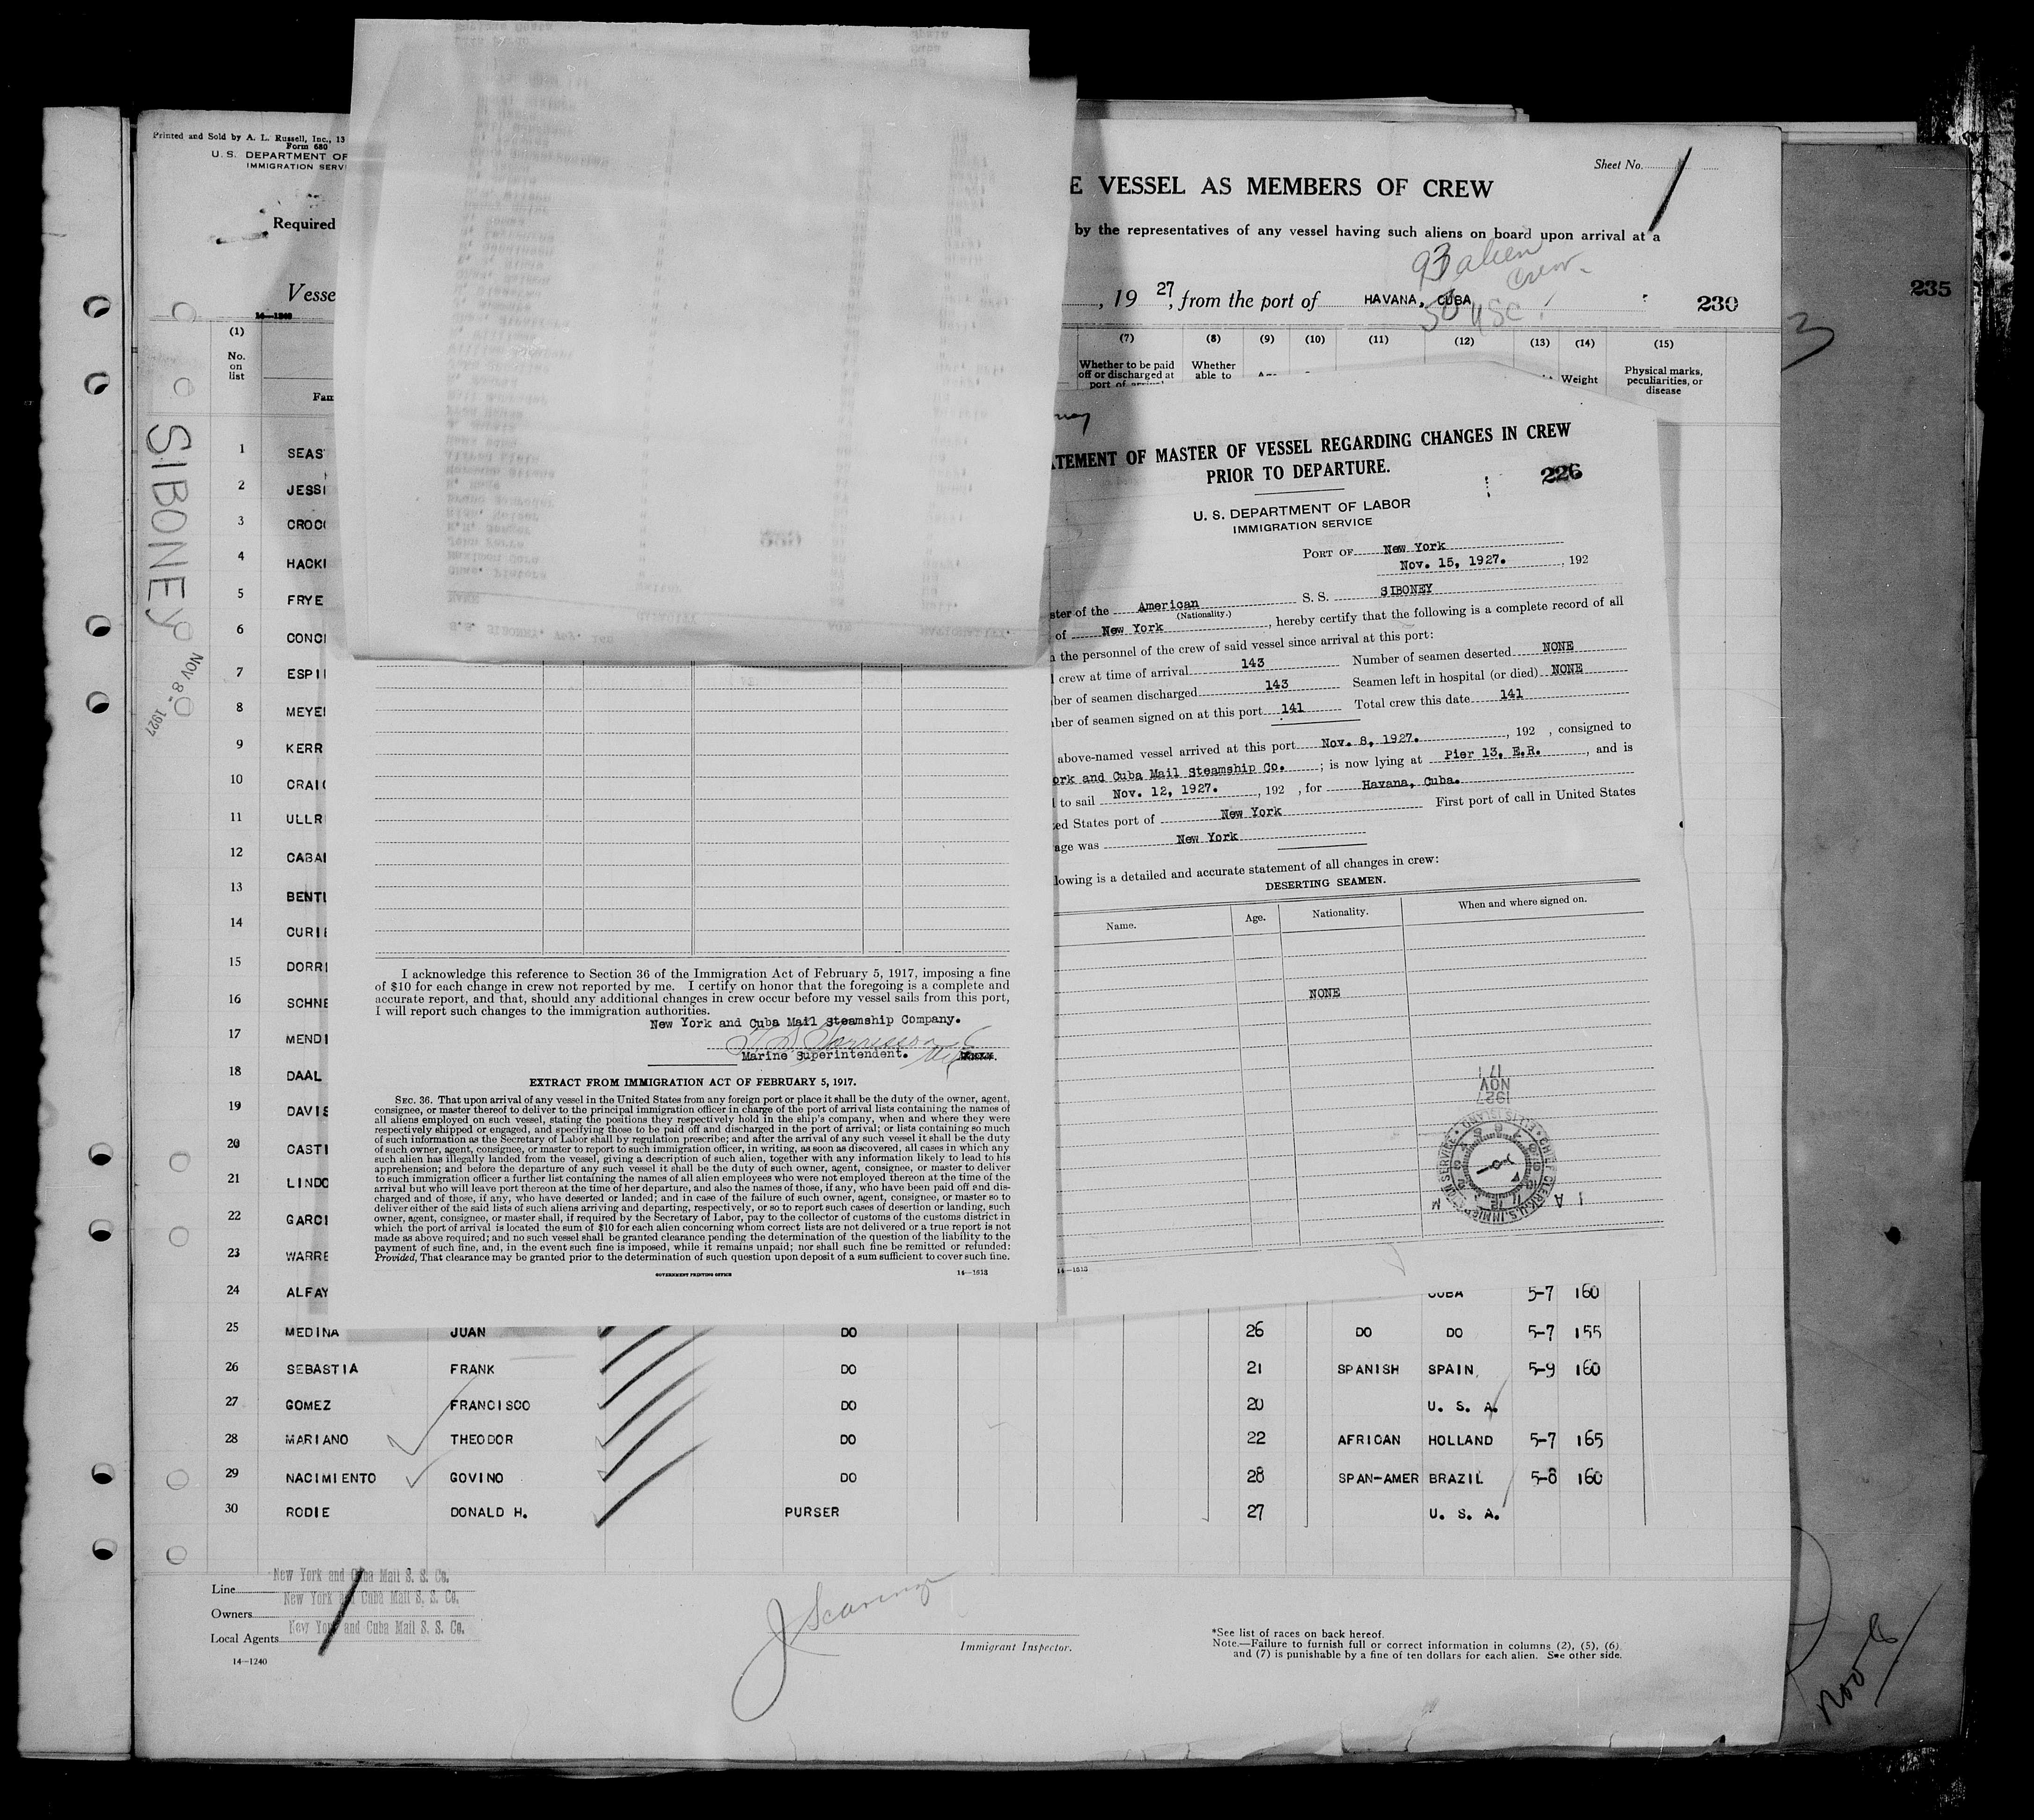 Printed and Sold by A. L. Russell, Inc., 13
Form 680
U. S. DEPARTMENT OF
IMMIGRATION SERV
Sheet No.
E VESSEL AS MEMBERS OF CREW
Required
by the representatives of any vessel having such aliens on board upon arrival at a
93 alien
crew
Vesse
, 19 27, from the port of HAVANA, CUBA
50 USC
230
235
14—1240
3
(1) (7) (8) (9) (10) (11) (12) (13) (14) (15)
No. on list
Whether to be paid off or discharged at port of
Whether able to
Weight
Physical marks, peculiarities, or disease
Fam
SIBONEY
NOV 8 - 1927
1 SEAS
2 JESSI
3 CROC
4 HACKI
5 FRYE
6 CONCI
7 ESPI
8 MEYE
9 KERR
10 CRAI
11 ULLR
12 CABA
13 BENT
14 CURI
15 DORRI
16 SCHNE
17 MENDI
18 DAAL
19 DAVIS
20 CASTI
21 LINDO
22 GARCI
23 WARRE
24 ALFAY CUBA 5-7 160
25 MEDINA JUAN DO 26 DO DO 5-7 155
26 SEBASTIA FRANK DO 21 SPANISH SPAIN 5-9 160
27 GOMEZ FRANCISCO DO 20 U. S. A.
28 MARIANO THEODOR DO 22 AFRICAN HOLLAND 5-7 165
29 NACIMIENTO GOVINO DO 28 SPAN-AMER BRAZIL 5-8 160
30 RODIE DONALD H. PURSER 27 U. S. A.
Line New York and Cuba Mail S. S. Co.
Owners New York and Cuba Mail S. S. Co.
Local Agents New York and Cuba Mail S. S. Co.
14—1240
Immigrant Inspector.
*See list of races on back hereof.
Note.—Failure to furnish full or correct information in columns (2), (5), (6)
and (7) is punishable by a fine of ten dollars for each alien. See other side.
Nov 8
I acknowledge this reference to Section 36 of the Immigration Act of February 5, 1917, imposing a fine
of $10 for each change in crew not reported by me. I certify on honor that the foregoing is a complete and
accurate report, and that, should any additional changes in crew occur before my vessel sails from this port,
I will report such changes to the immigration authorities.
New York and Cuba Mail Steamship Company.
Marine Superintendent.
EXTRACT FROM IMMIGRATION ACT OF FEBRUARY 5, 1917.
SEC. 36. That upon arrival of any vessel in the United States from any foreign port or place it shall be the duty of the owner, agent,
consignee, or master thereof to deliver to the principal immigration officer in charge of the port of arrival lists containing the names of
all aliens employed on such vessel, stating the positions they respectively hold in the ship's company, when and where they were
respectively shipped or engaged, and specifying those to be paid off and discharged in the port of arrival; or lists containing so much
of such information as the Secretary of Labor shall by regulation prescribe; and after the arrival of any such vessel it shall be the duty
of such owner, agent, consignee, or master to report to such immigration officer, in writing, as soon as discovered, all cases in which any
such alien has illegally landed from the vessel, giving a description of such alien, together with any information likely to lead to his
apprehension; and before the departure of any such vessel it shall be the duty of such owner, agent, consignee, or master to deliver
to such immigration officer a further list containing the names of all alien employees who were not employed thereon at the time of the
arrival but who will leave port thereon at the time of her departure, and also the names of those, if any, who have been paid off and dis-
charged and of those, if any, who have deserted or landed; and in case of the failure of such owner, agent, consignee, or master so to
deliver either of the said lists of such aliens arriving and departing, respectively, or so to report such cases of desertion or landing, such
owner, agent, consignee, or master shall, if required by the Secretary of Labor, pay to the collector of customs of the customs district in
which the port of arrival is located the sum of $10 for each alien concerning whom correct lists are not delivered or a true report is not
made as above required; and no such vessel shall be granted clearance pending the determination of the question of the liability to the
payment of such fine, and, in the event such fine is imposed, while it remains unpaid; nor shall such fine be remitted or refunded:
Provided, That clearance may be granted prior to the determination of such question upon deposit of a sum sufficient to cover such fine.
GOVERNMENT PRINTING OFFICE
14—1613
TEMENT OF MASTER OF VESSEL REGARDING CHANGES IN CREW
PRIOR TO DEPARTURE.
226
U. S. DEPARTMENT OF LABOR
IMMIGRATION SERVICE
PORT OF New York
Nov. 15, 1927. , 192
ster of the American S. S. SIBONEY
(Nationality.)
of New York , hereby certify that the following is a complete record of all
the personnel of the crew of said vessel since arrival at this port:
crew at time of arrival 143 Number of seamen deserted NONE
ber of seamen discharged 143 Seamen left in hospital (or died) NONE
ber of seamen signed on at this port 141 Total crew this date 141
above-named vessel arrived at this port Nov. 8, 1927. , 192 , consigned to
ork and Cuba Mail Steamship Co. ; is now lying at Pier 13, E.R. , and is
to sail Nov. 12, 1927. , 192 , for Havana, Cuba.
ed States port of New York First port of call in United States
age was New York
lowing is a detailed and accurate statement of all changes in crew:
DESERTING SEAMEN.
Name. Age. Nationality. When and where signed on.
NONE
1927
NOV
17
CHIEF CLERK U.S. IMMIGRATION SERVICE ELLIS ISLAND
14—1613